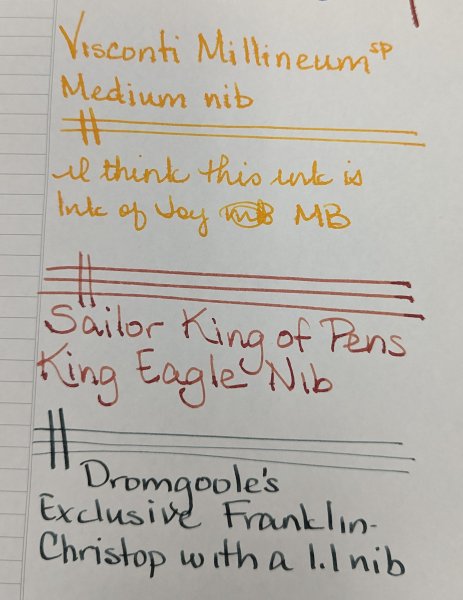 Visconti Millineum sp
Medium nib
I think this ink is
Ink of Joy MB
Sailor King of Pens
King Eagle Nib
Dromgoole's
Exclusive Franklin-
Christop with a 1.1 nib